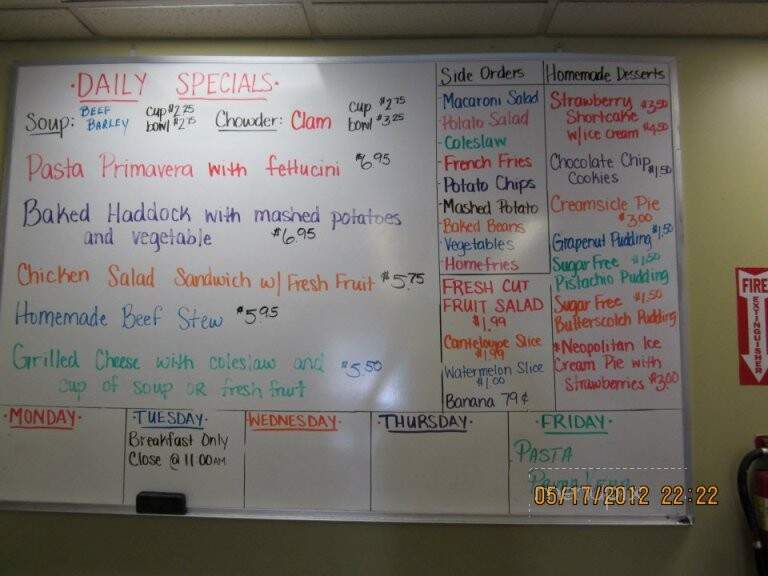 ·DAILY SPECIALS·
Soup: BEEF BARLEY cup $2.25 bowl $2.75 Chowder: Clam cup $2.75 bowl $3.25
Pasta Primavera with fettucini $6.95
Baked Haddock with mashed potatoes
and vegetable $6.95
Chicken Salad Sandwich w/ Fresh Fruit $5.75
Homemade Beef Stew $5.95
Grilled Cheese with coleslaw and $5.50
cup of soup OR fresh fruit
Side Orders
Macaroni Salad
Potato Salad
Coleslaw
French Fries
Potato Chips
Mashed Potato
Baked Beans
Vegetables
Homefries
FRESH CUT
FRUIT SALAD
$1.99
Canteloupe Slice
$1.99
Watermelon Slice
$1.00
Banana 79¢
Homemade Desserts
Strawberry $3.50
Shortcake
w/ice cream $4.50
Chocolate Chip
Cookies $1.50
Creamsicle Pie
$3.00
Grapenut Pudding $1.50
Sugar Free $1.50
Pistachio Pudding
Sugar Free $1.50
Butterscotch Pudding
*Neopolitan Ice
Cream Pie with
Strawberries $3.00
·MONDAY·
·TUESDAY·
Breakfast Only
Close @ 11:00AM
WEDNESDAY·
·THURSDAY·
·FRIDAY·
PASTA
05/17/2012 22:22
FIRE
EXTINGUISHER